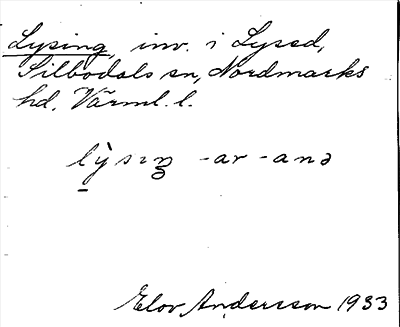 Lysing, inv. i Lysed,
Silbodals sn, Nordmarks
hd. Värml. l.
lỳsıŋ -ar -anə
Elov Andersson 1933